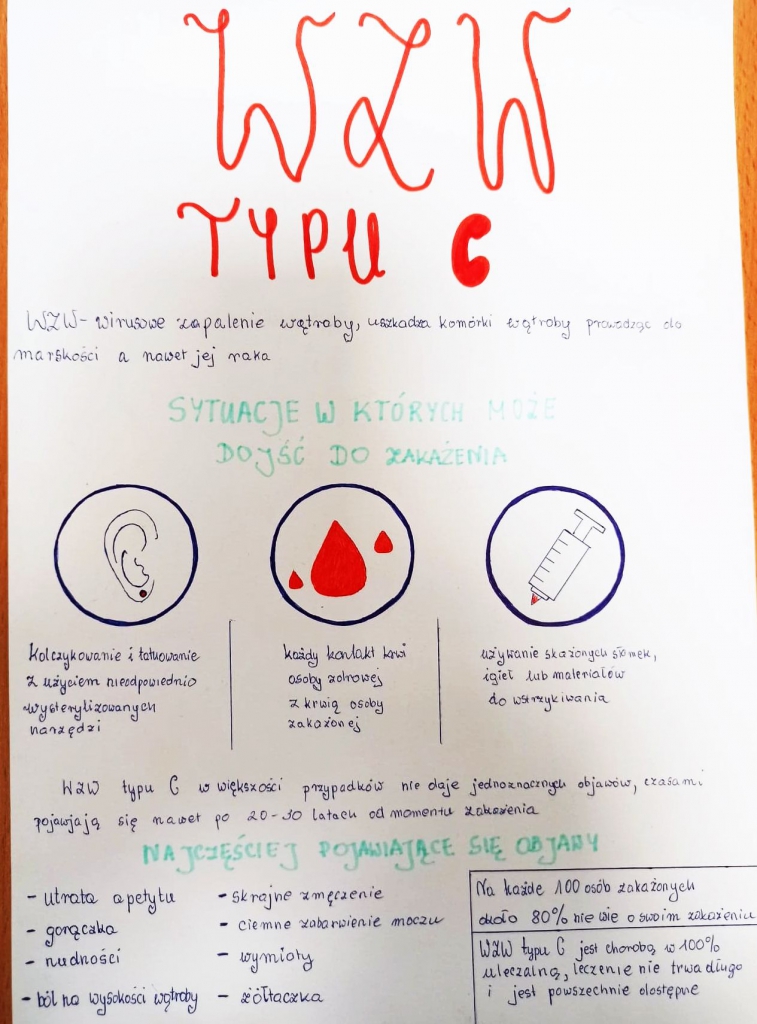 WZW
TYPU C
WZW- wirusowe zapalenie wątroby, uszkadza komórki wątroby prowadząc do
marskości a nawet jej raka
SYTUACJE W KTÓRYCH MOŻE
DOJŚĆ DO ZAKAŻENIA
kolczykowanie i tatuowanie
z użyciem nieodpowiednio
wysterylizowanych
narzędzi
każdy kontakt krwi
osoby zdrowej
z krwią osoby
zakażonej
używanie skażonych słomek,
igieł lub materiałów
do wstrzykiwania
WZW typu C w większości przypadków nie daje jednoznacznych objawów, czasami
pojawjają się nawet po 20-30 latach od momentu zakażenia
NAJCZĘŚCIEJ POJAWIAJĄCE SIĘ OBJAWY
- utrata apetytu
- gorączka
- nudności
- ból na wysokości wątroby
- skrajne zmęczenie
- ciemne zabarwienie moczu
- wymioty
- żółtaczka
Na każde 100 osób zakażonych
około 80% nie wie o swoim zakażeniu
WZW typu C jest chorobą w 100%
uleczalną, leczenie nie trwa długo
i jest powszechnie dostępne